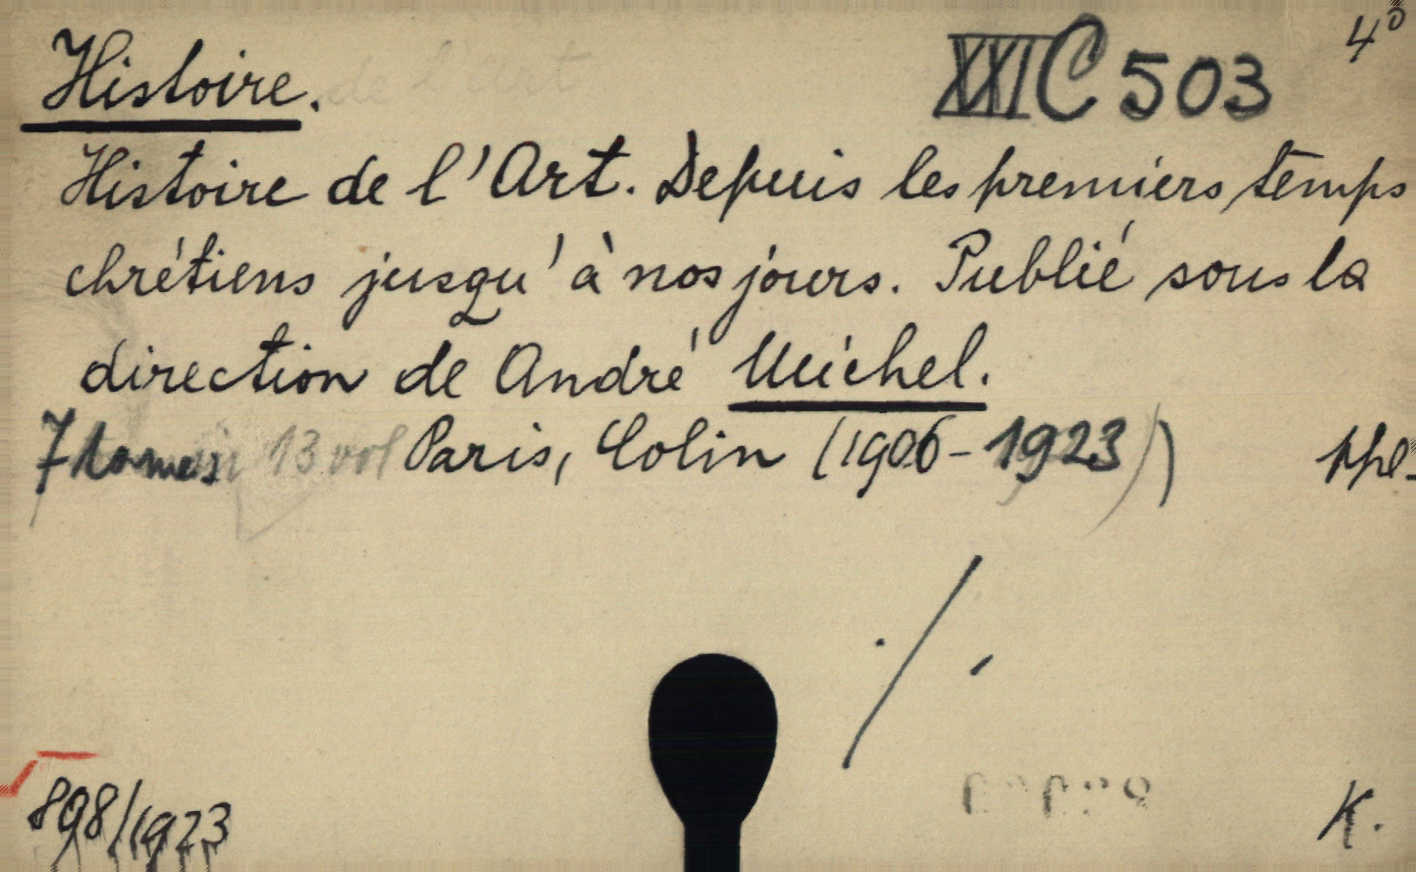 Histoire. de l'art XXI C 503 4°
Histoire de l'Art. Depuis les premiers temps
chrétiens jusqu'à nos jours. Publié sous la
direction de André Michel.
7 tomes in 13 vol Paris, Colin (1906-1923)
./.
898/1923 K.